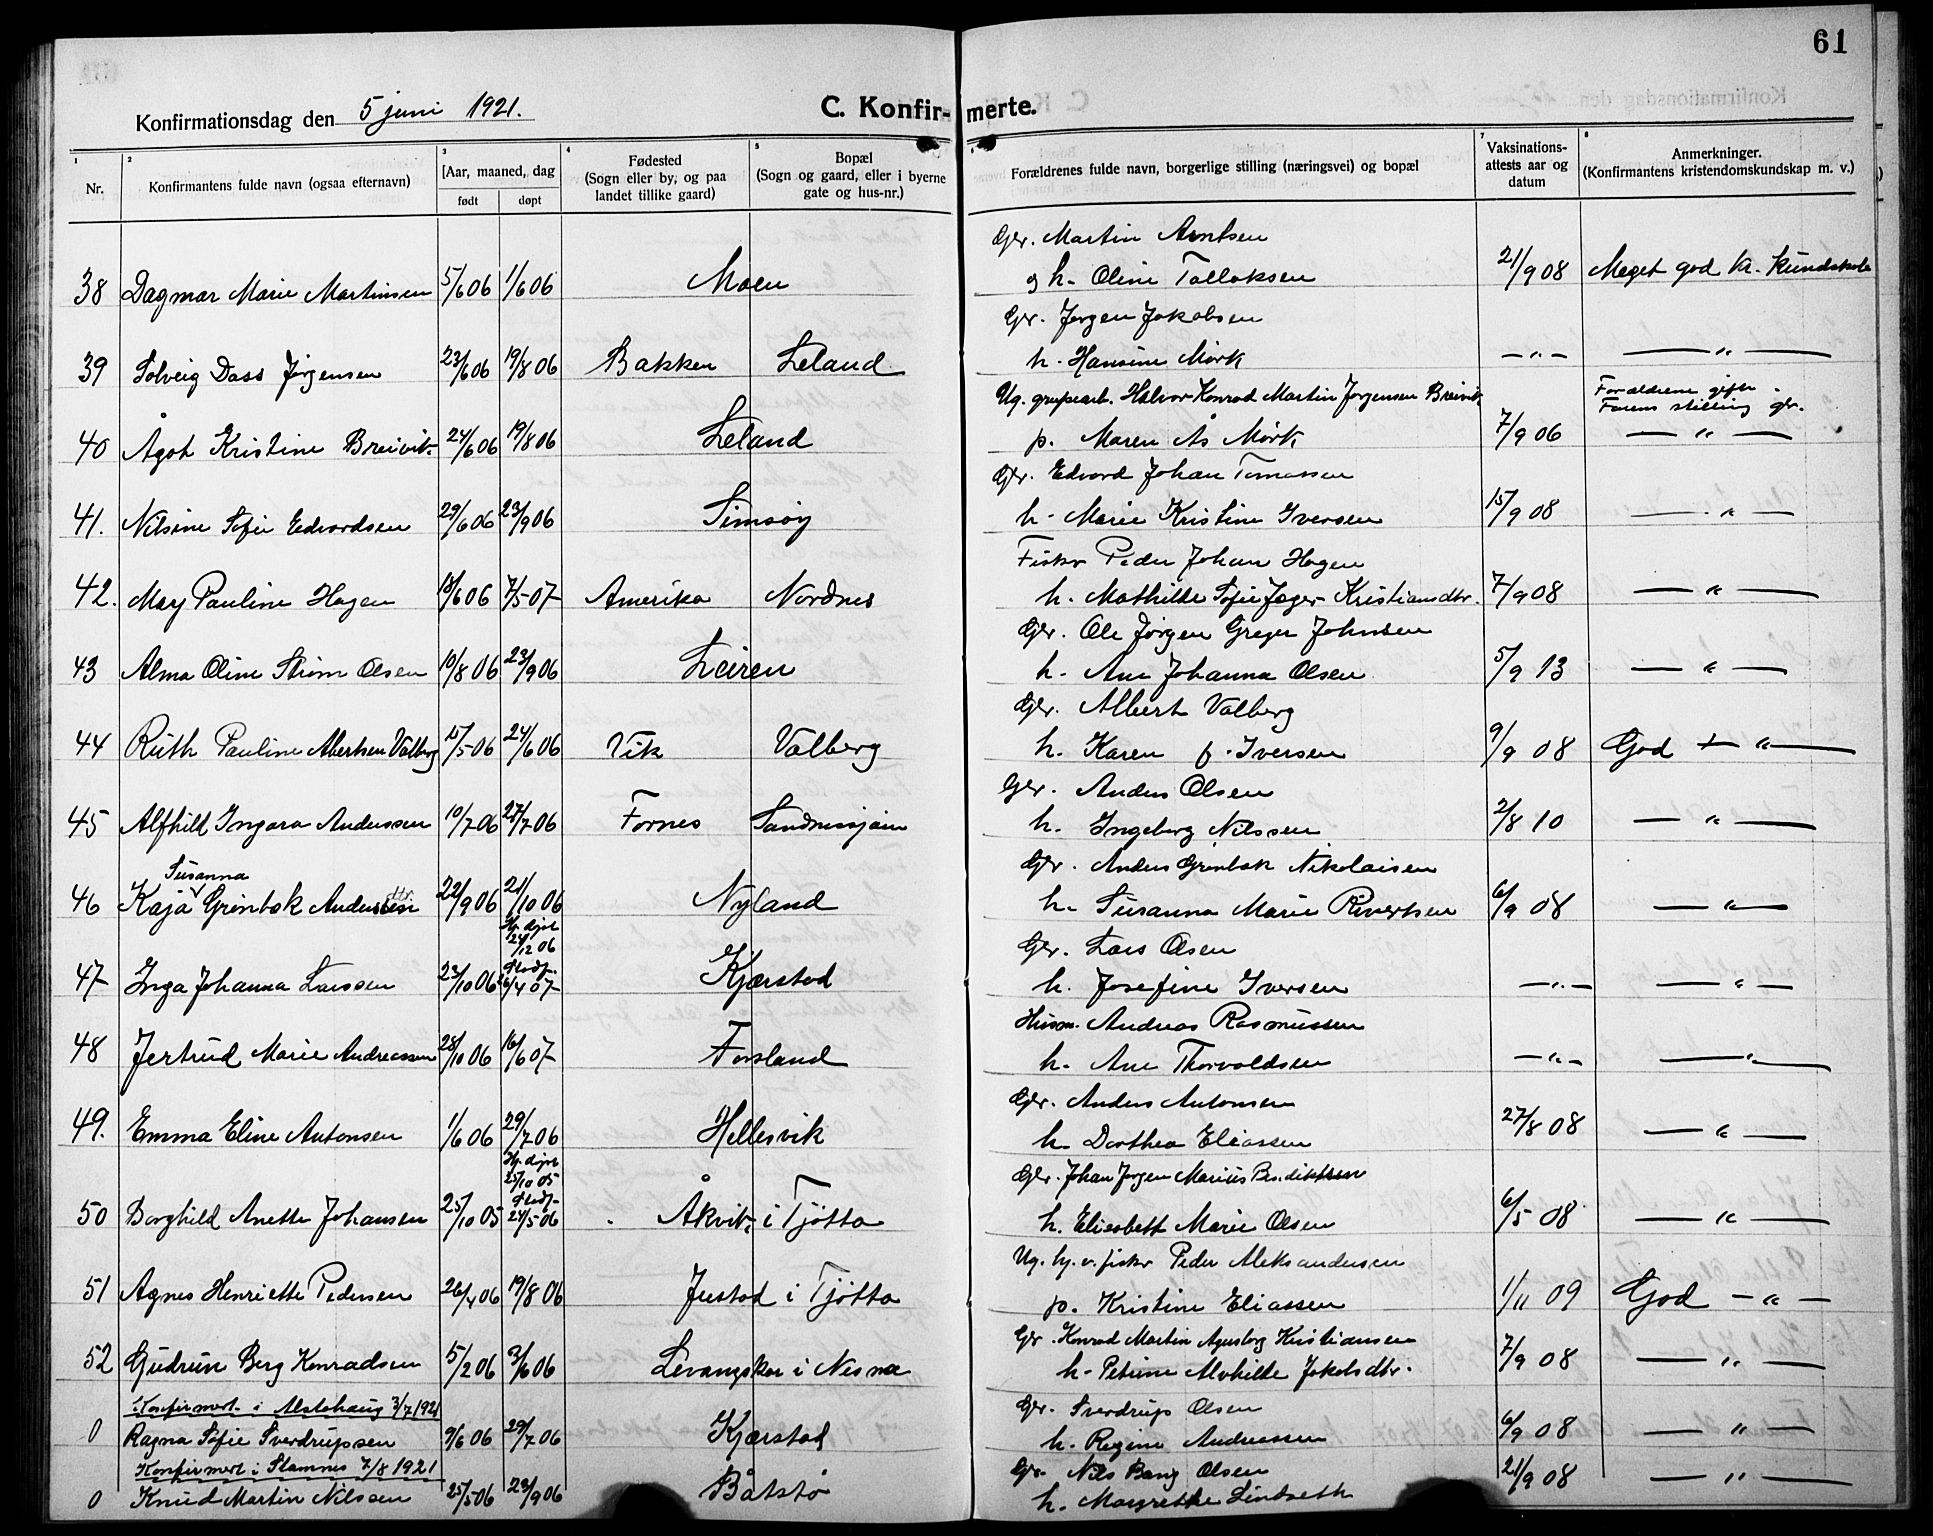 61
Konfirmationsdag den 5 juni 1921.
C. Konfirmerte.
1 2 3 4 5 6 7 8
Nr.
Konfirmantens fulde navn (ogsaa efternavn)
[Aar, maaned, dag
født døpt
Fødested
(Sogn eller by, og paa
landet tillike gaard)
Bopæl
(Sogn og gaard, eller i byerne
gate og hus-nr.)
Forældrenes fulde navn, borgerlige stilling (næringsvei) og bopæl
Vaksinations-
attests aar og
datum
Anmerkninger.
(Konfirmantens kristendomskundskap m. v.)
Gbr. Martin Arntsen
38 Dagmar Marie Martinsen 5/6 06 1/6 06 Moen g h. Oline Tollaksen 21/9 08 Meget god kr. kundskab
Gbr. Jørgen Jakobsen
39 Solveig Dass Jørgensen 23/6 06 19/8 06 Bakken Leland h. Hansine Mørk —"— —"—
Ug. grubearb. Halvor Konrad Martin Jørgensen Breivik Forældrene gifte.
Farens stilling gbr.
40 Ågot Kristine Breivik 24/6 06 19/8 06 Leland p. Maren Ås Mørk 7/9 06 —"—
Gbr. Edvard Johan Tomassen
41. Nilsine Sofie Edvardsen 29/6 06 23/9 06 Simsøy h. Marie Kristine Iversen 15/9 08 —"—
Fisker Peder Johan Hagen
42. May Pauline Hagen 18/6 06 7/5 07 Amerika Nordnes h. Mathilde Sofie Jæger Kristiansdtr. 7/9 08 —"—
Gbr. Ole Jørgen Greger Johnsen
43 Alma Oline Strøm Olsen 10/8 06 23/9 06 Leiren h. Ane Johanna Olsen 5/9 13 —"—
Gbr. Albert Valberg
44 Ruth Pauline Albertsen Valberg 15/5 06 24/6 06 Vik Valberg h. Karen f. Iversen 9/9 08 God —"—
Gbr. Anders Olsen
45 Alfhild Ingara Anderssen 10/7 06 25/7 06 Fornes Sandnessjøen h. Ingeberg Nilssen 2/8 10 —"—
Susanna Gbr. Anders Grønbæk Nikolaisen
46 Kaja Grønbæk Anderssen dtr. 22/9 06 21/10 06 Nyland h. Susanna Marie Rivertsen 6/9 08 —"—
Hj. døpt
24/12 06 Gbr. Lars Olsen
stadf.
47 Inga Johanna Larssen 23/10 06 6/4 07 Kjærstad h. Josefine Iversen —"— —"—
Husm. Andreas Rasmussen
48 Jertrud Marie Andreassen 28/10 06 16/6 07 Forsland h. Ane Thorvaldsen —"— —"—
Gbr. Anders Antonsen
49. Emma Eline Antonsen 1/6 06 29/7 06 Hellesvik h. Dorthea Eliassen 27/8 08 —"—
Hj. døpt
25/10 05 Gbr. Johan Jørgen Marius Bendiktsen
stadf.
50 Borghild Anette Johansen 25/10 05 24/5 06 Åkvik i Tjøtta h. Eliesbett Marie Olsen 6/5 08 —"—
Ug. hj. v. fisker Peder Aleksandersen
51 Agnes Henriette Pedersen 26/4 06 19/8 06 Justad i Tjøtta p. Kristine Eliassen 1/11 09 God —"—
Gbr. Konrad Martin Kristiansen
52 Gudrun Berg Konradsen 5/2 06 3/6 06 Levangskar i Nesna h. Petrine Alvhilde Jakobsdtr. 7/9 08 —"—
Konfirmert i Alstahaug 3/7 1921 Gbr. Sverdrup Olsen
0 Ragna Sofie Sverdrupsen 9/6 06 29/7 06 Kjærstad h. Regine Andreassen 6/9 08 —"—
Konfirmert i Stamnes 7/8 1921 Gbr. Nils Bang Olsen
0 Knud Martin Nilssen 25/5 06 23/9 06 Båtstø h. Margrethe Lindseth 21/9 08 —"—